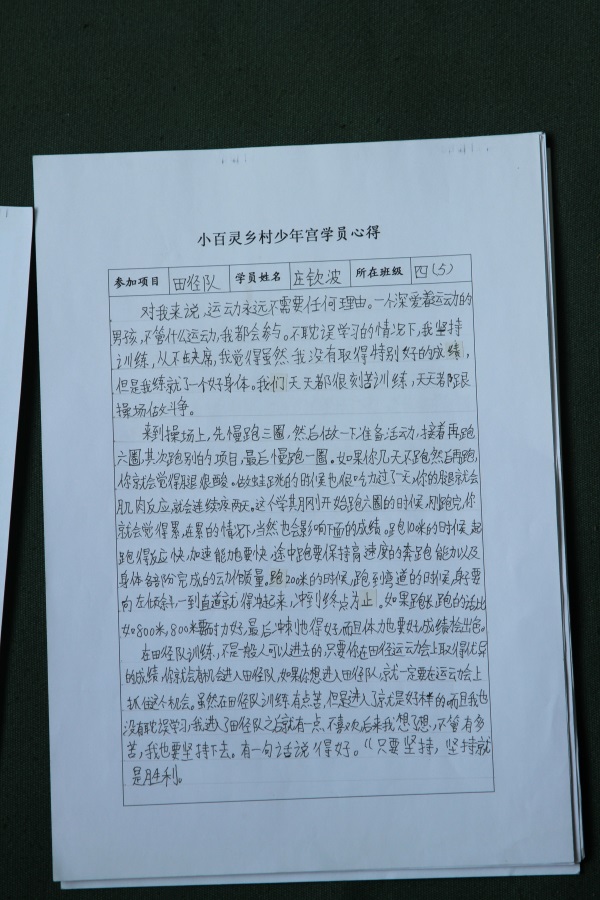 小百灵乡村少年宫学员心得
参加项目 田径队 学员姓名 庄钦波 所在班级 四(5)
对我来说,运动永远不需要任何理由。一个深爱着运动的
男孩,不管什么运动,我都会参与。不耽误学习的情况下,我坚持
训练,从不缺席,我觉得虽然我没有取得特别好的成绩,
但是我练就了一个好身体。我们天天都很刻苦训练,天天都跟
操场做斗争。
来到操场上,先慢跑三圈,然后做一下准备活动,接着再跑
六圈,其次跑别的项目,最后慢跑一圈。如果你几天不跑然后再跑,
你就会觉得腿很酸。做蛙跳的时候也很吃力过了一天,你的腿就会
肌肉反应,就会连续疼两天。这个学其月刚开始跑六圈的时候,刚跑完,你
就会觉得累,在累的情况下,当然也会影响下面的成绩。跑10米的时候,起
跑得反应快,加速能力也要快,途中跑要保持高速度的奔跑能力以及
身体各部阶完成的动作质量。跑200米的时候,跑到弯道的时候,身子要
向左倾斜,一到直道就得冲起来,冲到终点为止。如果跑长跑的话比
如800米,800米要耐力好,最后冲刺也得好,而且体力也要好,成绩才会出色。
在田径队训练,不是一般人可以进去的,只要你在田径运动会上取得优异
的成绩,你就会有机会进入田径队,如果你想进入田径队,就一定要在运动会上
抓住这个机会。虽然在田径队训练有点苦,但是进入了就是好样的而且我也
没有耽误学习,我进了田径队之后就有一点,不喜欢后来我想了想,不管有多
苦,我也要坚持下去。有一句话说得好。“只要坚持,坚持就
是胜利。